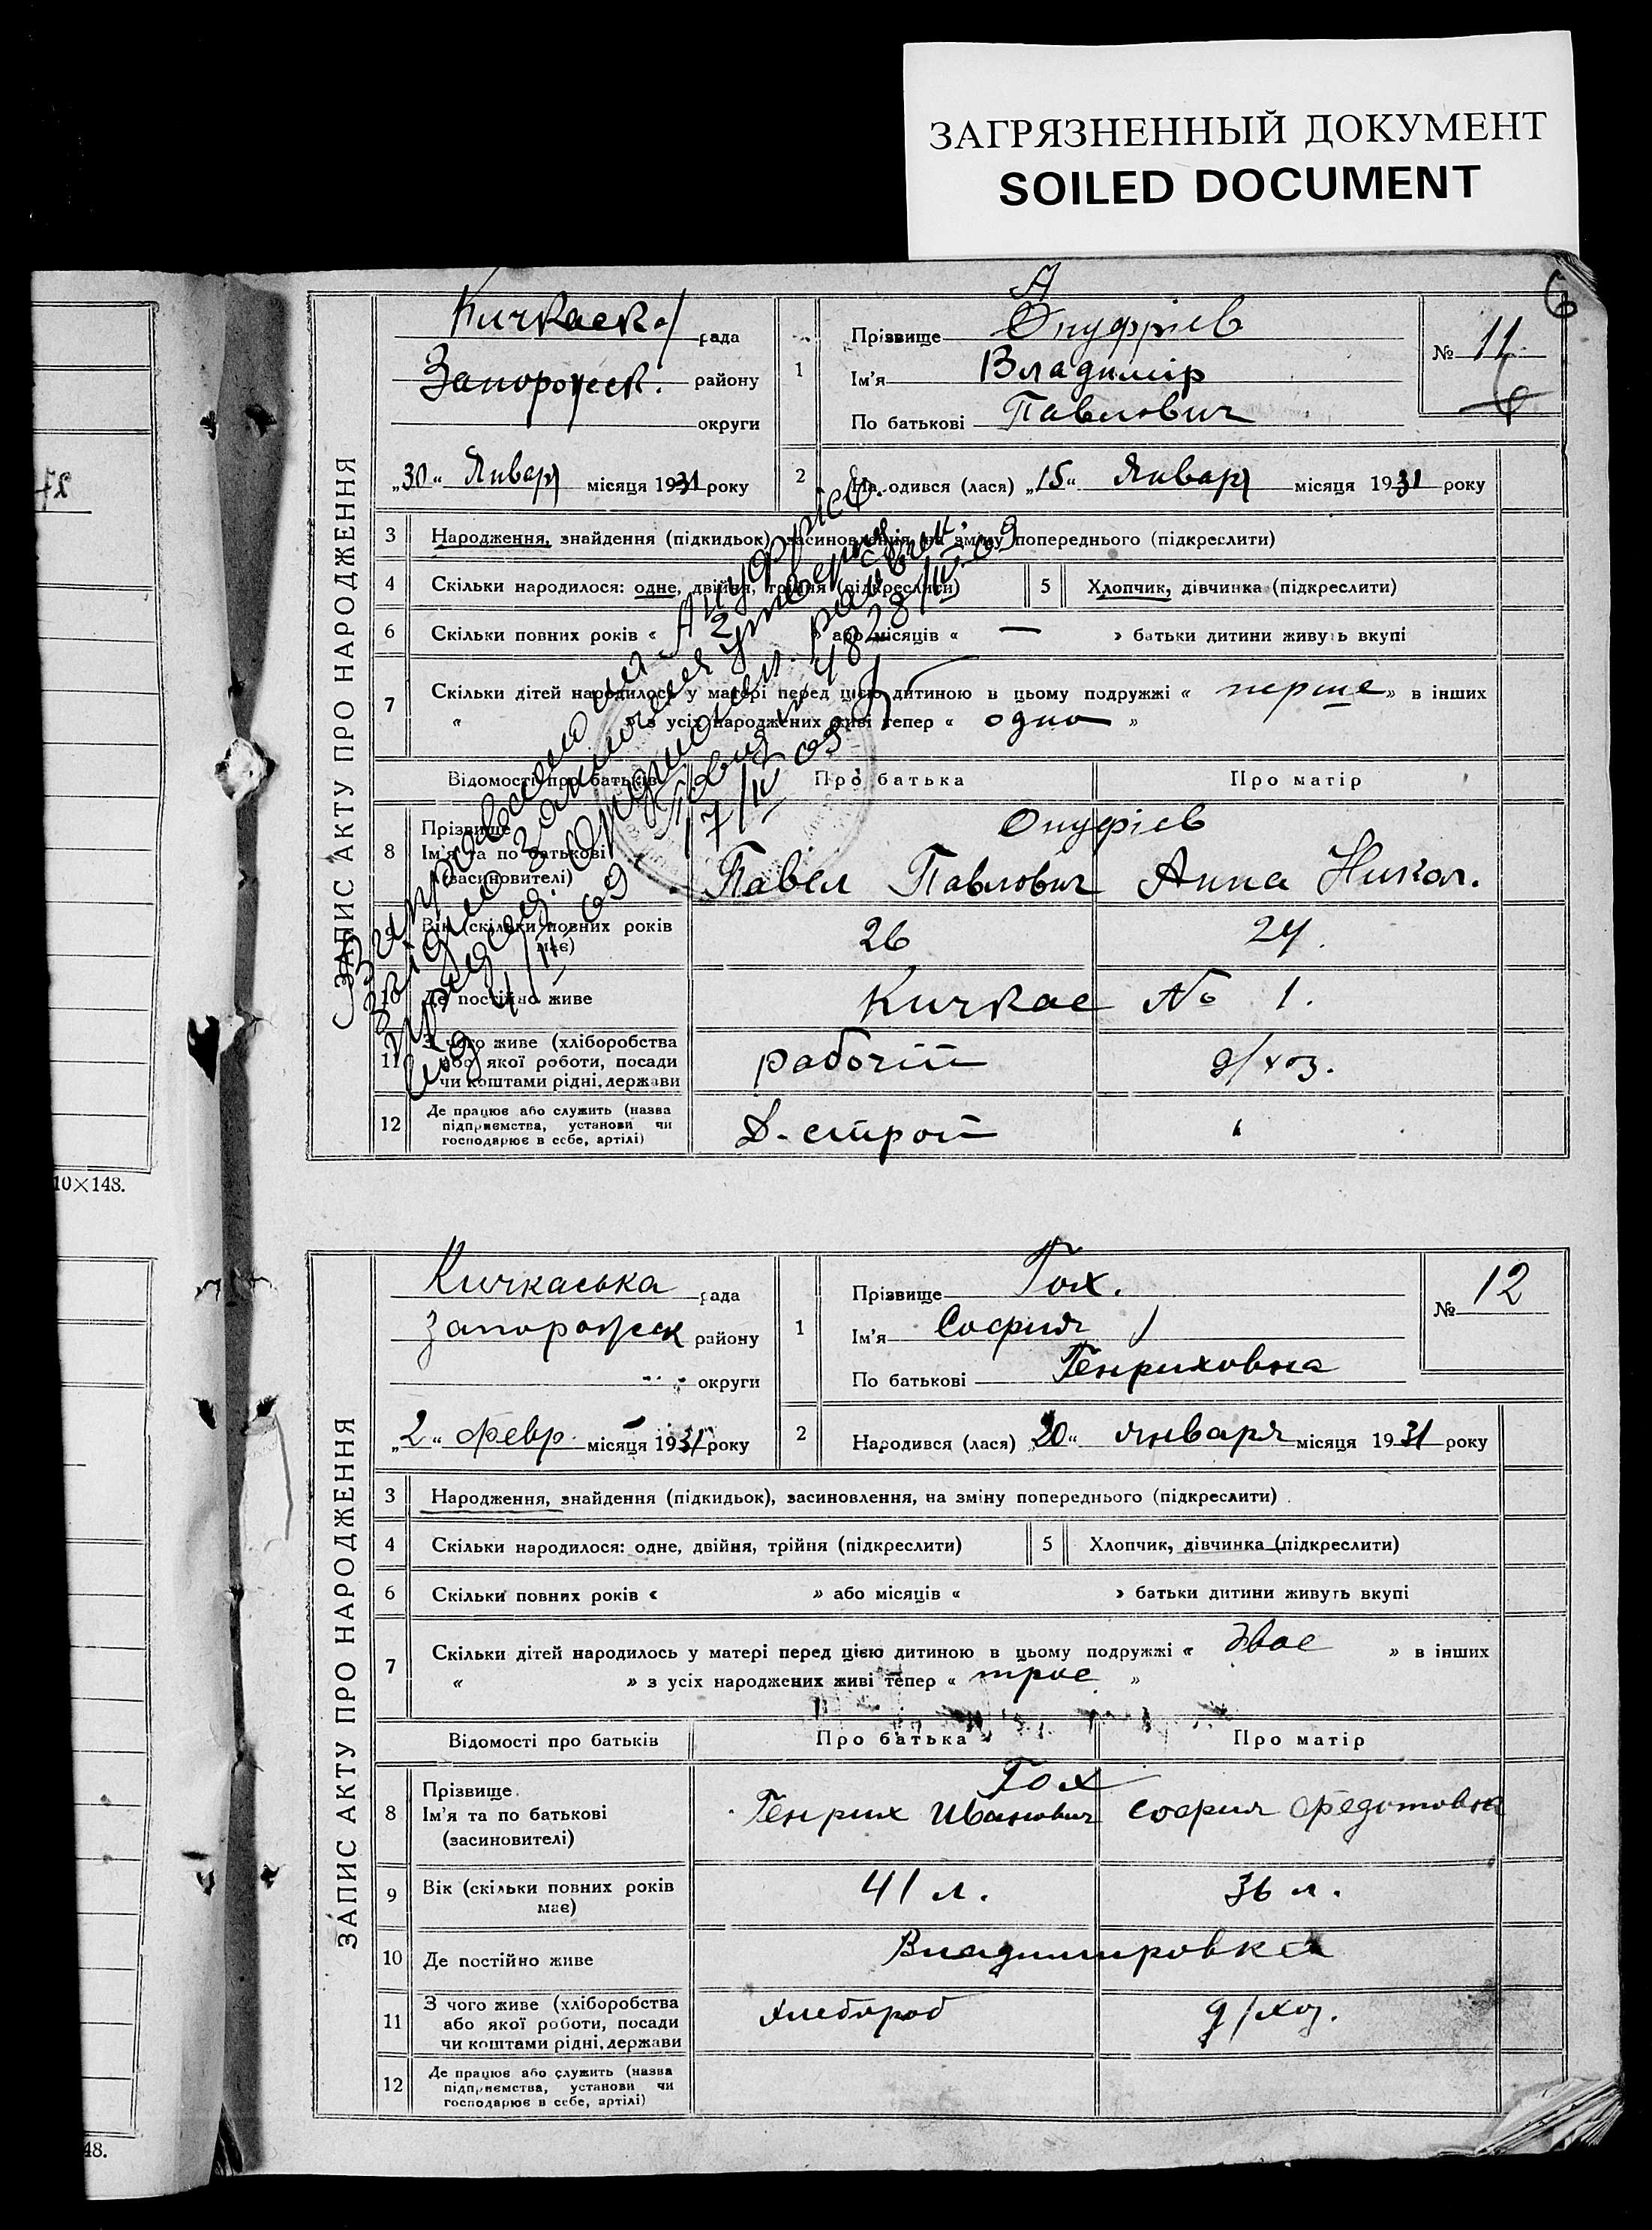 ЗАГРЯЗНЕННЫЙ ДОКУМЕНТ
SOILED DOCUMENT
6
10×148.
48.
ЗАПИС АКТУ ПРО НАРОДЖЕННЯ
Кичкаск. рада
Запорожск. району
округи
„30“ Январ місяця 1931 року
А
1 Прізвище Онуфріев
Ім'я Владимір
По батькові Павлович
№ 11
2 Народився (лася) „15“ Январ місяця 1931 року
3 Народження, знайдення (підкидьок), засиновлення, на зміну попереднього (підкреслити)
4 Скільки народилося: одне, двійня, трійня (підкреслити) 5 Хлопчик, дівчинка (підкреслити)
6 Скільки повних років « » або місяців « — » батьки дитини живуть вкупі
7 Скільки дітей народилось у матері перед цією дитиною в цьому подружжі « перше » в інших
« » з усіх народжених живі тепер « одно »
Відомості про батьків Про батька Про матір
8 Прізвище Онуфріев
Ім'я та по батькові Павел Павлович Анна Никол.
(засиновителі)
9 Вік (скільки повних років має) 26 24.
10 Де постійно живе Кичкас № 1.
11 З чого живе (хліборобства рабочій д/хоз.
або якої роботи, посади
чи коштами рідні, держави
12 Де працює або служить (назва Д-строй "
підприємства, установи чи
господарює в себе, артілі)
Ануфрієв.
4828/IV-69
17/IV 69
4/IV 69
ЗАПИС АКТУ ПРО НАРОДЖЕННЯ
Кичкаська рада
Запорожск району
округи
„2“ февр. місяця 1931 року
1 Прізвище Гох.
Ім'я София
По батькові Генриховна
№ 12
2 Народився (лася) „20“ января місяця 1931 року
3 Народження, знайдення (підкидьок), засиновлення, на зміну попереднього (підкреслити)
4 Скільки народилося: одне, двійня, трійня (підкреслити) 5 Хлопчик, дівчинка (підкреслити)
6 Скільки повних років « » або місяців « » батьки дитини живуть вкупі
7 Скільки дітей народилось у матері перед цією дитиною в цьому подружжі « двое » в інших
« » з усіх народжених живі тепер « трое »
Відомості про батьків Про батька Про матір
8 Прізвище Гох
Ім'я та по батькові Генрих Иванович София Федотовна
(засиновителі)
9 Вік (скільки повних років має) 41 л. 36 л.
10 Де постійно живе Владимировка
11 З чого живе (хліборобства хлебороб д/хоз.
або якої роботи, посади
чи коштами рідні, держави
12 Де працює або служить (назва
підприємства, установи чи
господарює в себе, артілі)